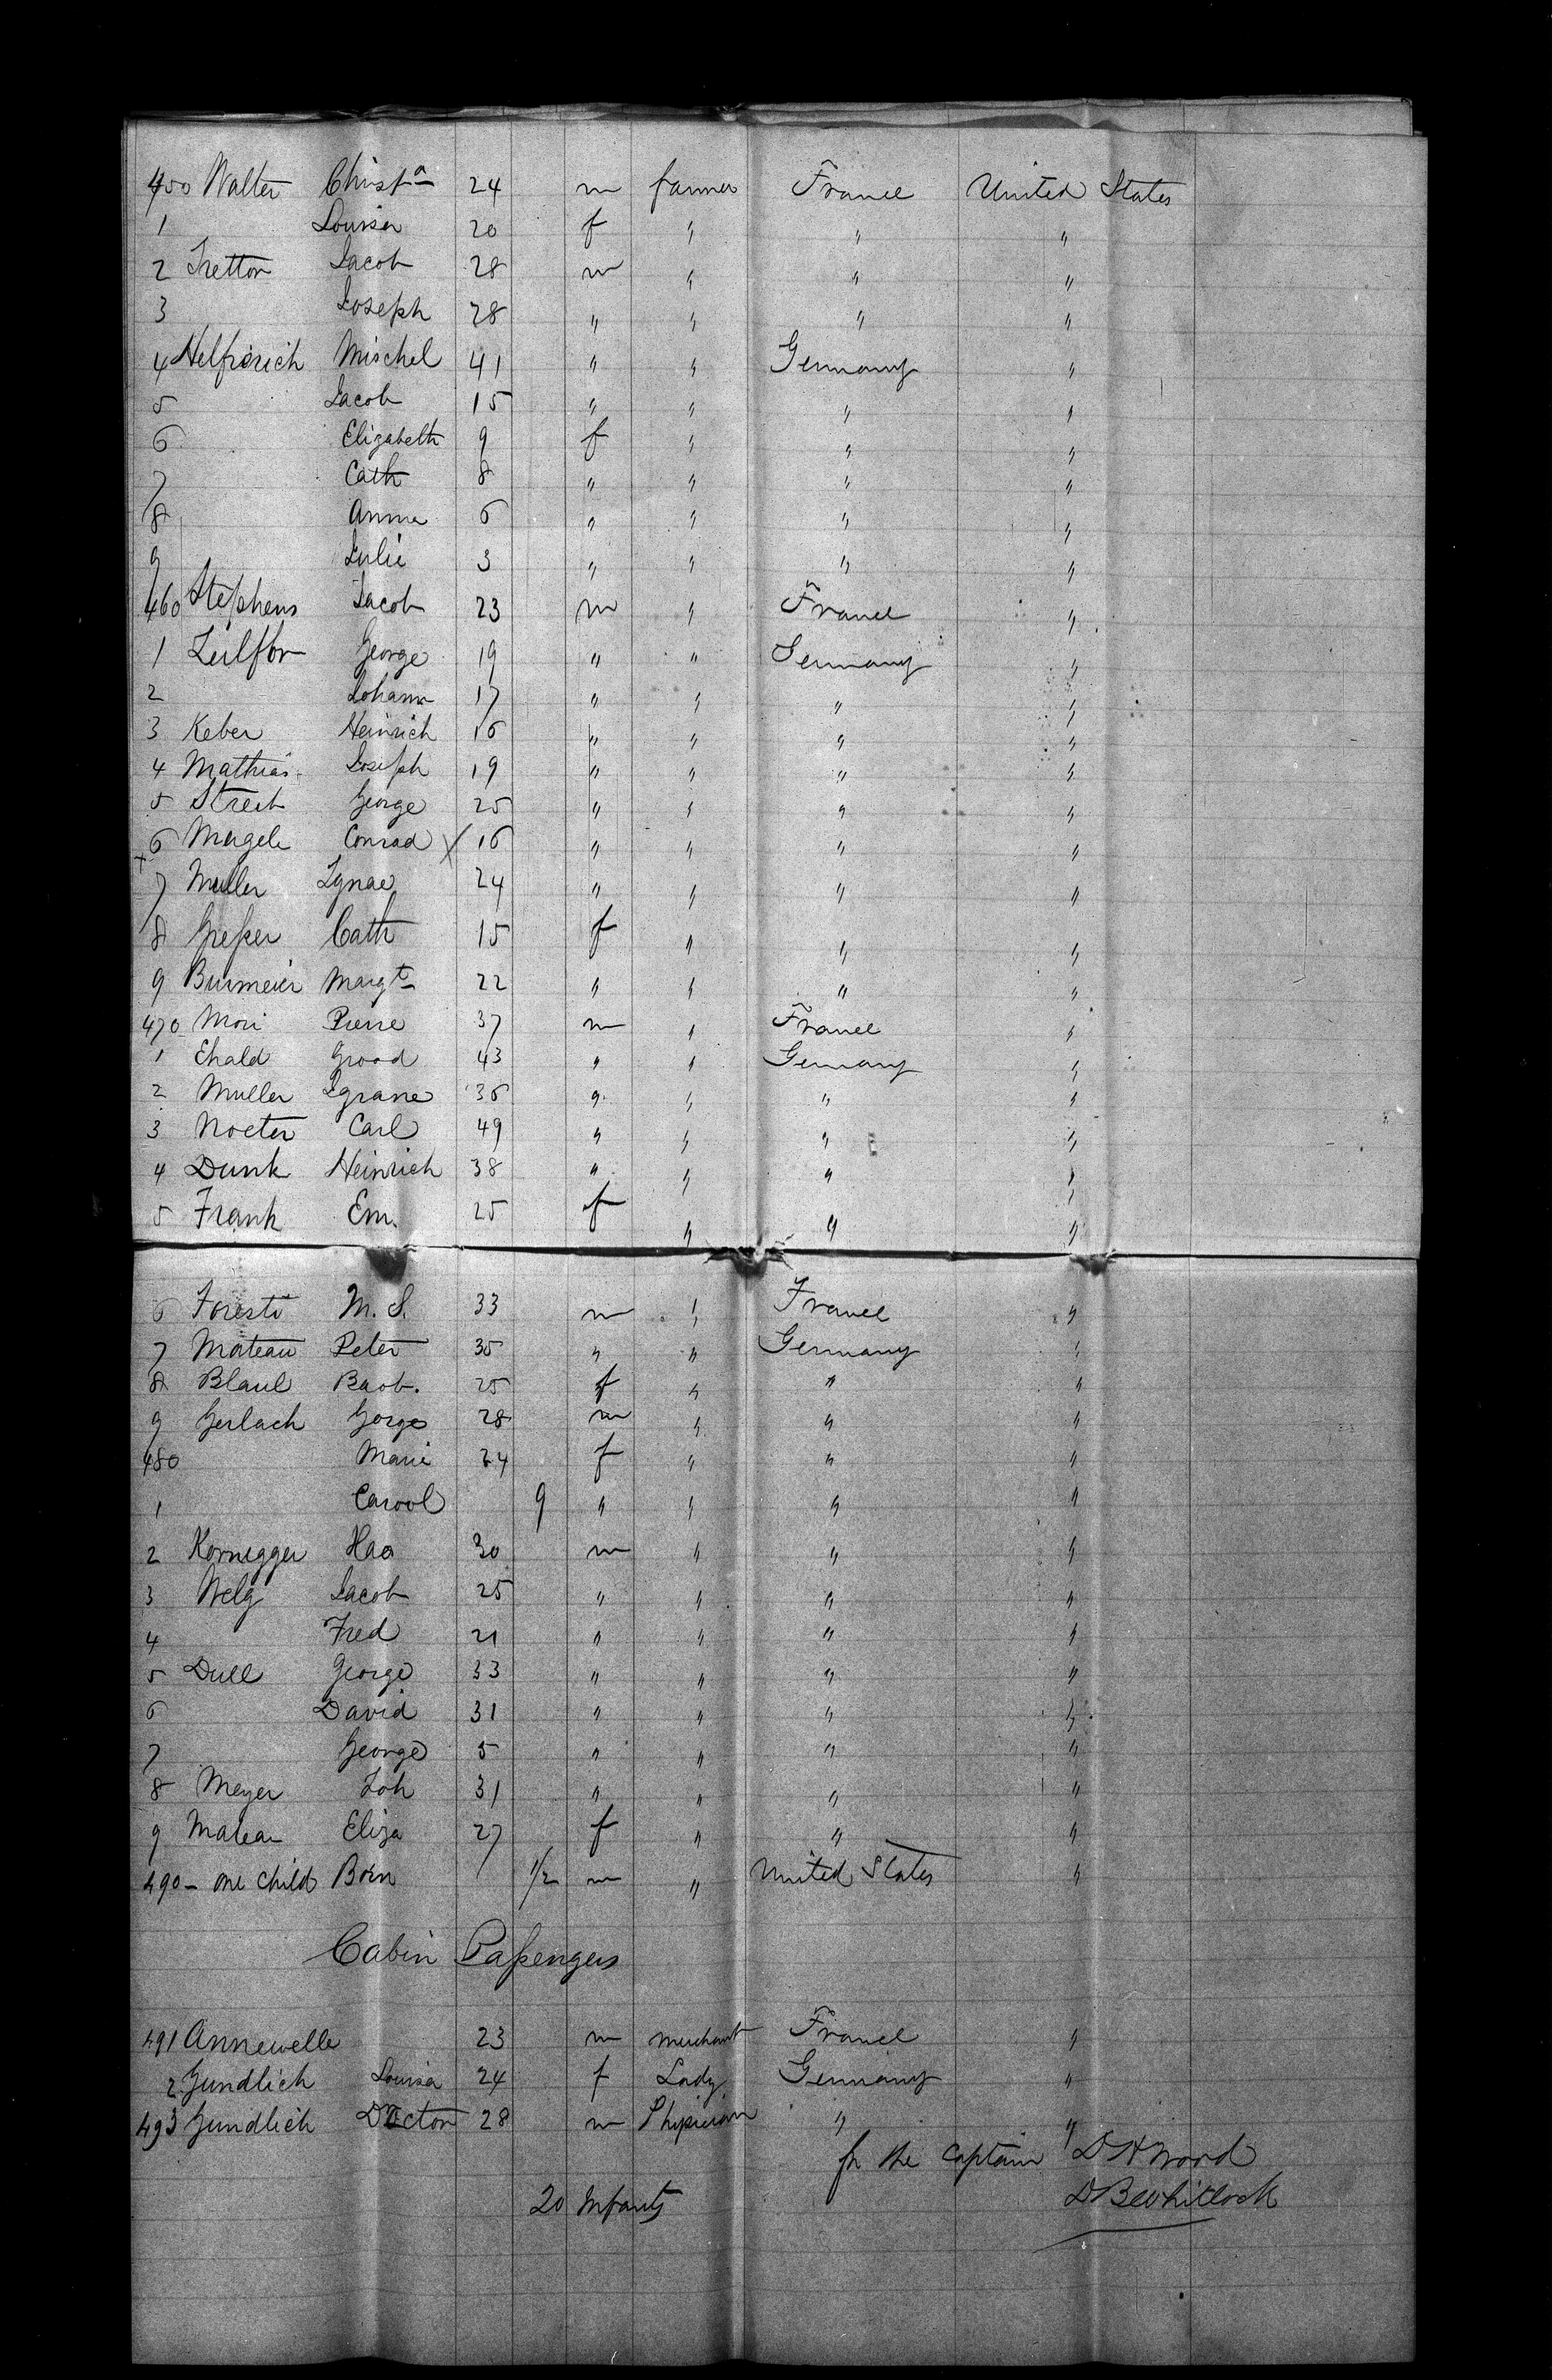 450 Walter Christª 24 m farmer France United States
1 Louisa 20 f " " "
2 Tretter Jacob 28 m " " "
3 Joseph 28 " " " "
4 Helfrerich Mischel 41 " " Germany "
5 Jacob 15 " " " "
6 Elizabeth 9 f " " "
7 Cath 8 " " " "
8 Anna 6 " " " "
9 Julie 3 " " " "
460 Stephens Jacob 23 m " France "
1 George 19 " " Germany "
2 Johann 17 " " " "
3 Keber Heinrich 16 " " " "
4 Mathias Joseph 19 " " " "
5 Streit George 25 " " " "
x 6 Magele Conrad X 16 " " " "
7 Muller Ignac 24 " " " "
8 Cath 15 f " " "
9 Burmeier Margt 22 " " " "
470 Mori Pierre 37 m " France "
1 Ehald 43 " " Germany "
2 Muller 36 " " " "
3 Noeter Carl 49 " " " "
4 Dunk Heinrich 38 " " " "
5 Frank Em. 25 f " " "
6 Foresti M. S. 33 m " France "
7 Mateau Peter 35 " " Germany "
8 Blaul Barb. 25 f " " "
9 Gerlach Gorge 28 m " " "
480 Marie 24 f " " "
1 Carool 9 " " " "
2 Kornegger Haa 30 m " " "
3 Welg Jacob 25 " " " "
4 Fred 21 " " " "
5 Dull George 33 " " " "
6 David 31 " " " "
7 George 5 " " " "
8 Meyer Joh 31 " " " "
9 Mateau Eliza 27 f " " "
490 - one child Born 1/2 m " United States "
Cabin Passengers
491 Annewelle 23 m merchant France "
2 Gundlich Louisa 24 f Lady Germany "
493 Gundlich Docton 28 m Physician " "
for the Captain D H Wood
20 Infants D B Whitlock